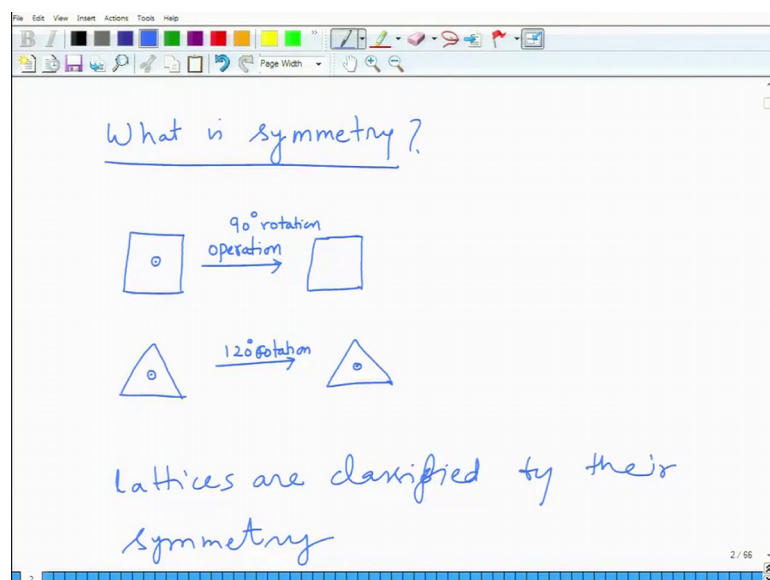 File Edit View Insert Actions Tools Help
B I
Page Width
What is symmetry?
90° rotation
operation
120° rotation
Lattices are classified by their
symmetry
2 / 66
2